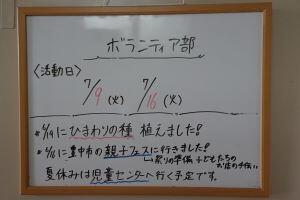 ボランティア部
〈活動日〉
7/9(火) 7/16(火)
*6/9にひまわりの種 植えました!
*6/16に豊中市の親子フェスに行きました!
↳祭りの準備+子どもたちの
お店の手伝い
夏休みは児童センターへ行く予定です。